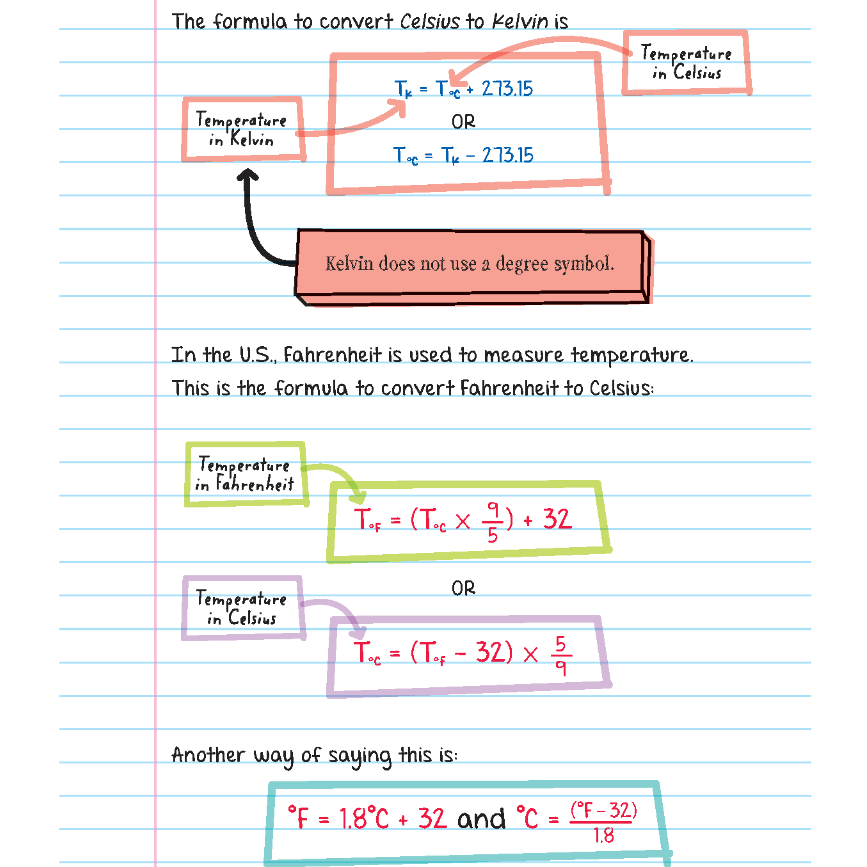 The formula to convert Celsius to Kelvin is
Temperature
in Celsius
Tₖ = T°C + 273.15
Temperature
in Kelvin
OR
T°C = Tₖ – 273.15
Kelvin does not use a degree symbol.
In the U.S., Fahrenheit is used to measure temperature.
This is the formula to convert Fahrenheit to Celsius:
Temperature
in Fahrenheit
T°F = (T°C × 9/5) + 32
OR
Temperature
in Celsius
T°C = (T°F – 32) × 5/9
Another way of saying this is:
°F = 1.8°C + 32 and °C = (°F – 32)/1.8